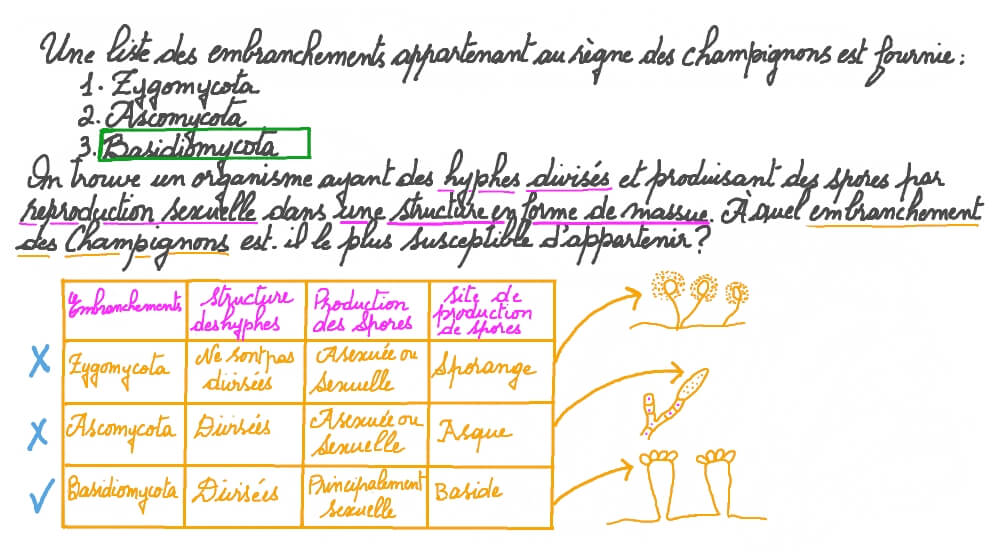 Une liste des embranchements appartenant au règne des champignons est fournie :
1. Zygomycota
2. Ascomycota
3. Basidiomycota
On trouve un organisme ayant des hyphes divisés et produisant des spores par
reproduction sexuelle dans une structure en forme de massue. À quel embranchement
des Champignons est-il le plus susceptible d'appartenir ?
Embranchements
Structure
des hyphes
Production
des Spores
Site de
production
de spores
Zygomycota
Ne sont pas
divisées
Asexuée ou
Sexuelle
Sporange
Ascomycota
Divisées
Asexuée ou
Sexuelle
Asque
Basidiomycota
Divisées
Principalement
sexuelle
Baside